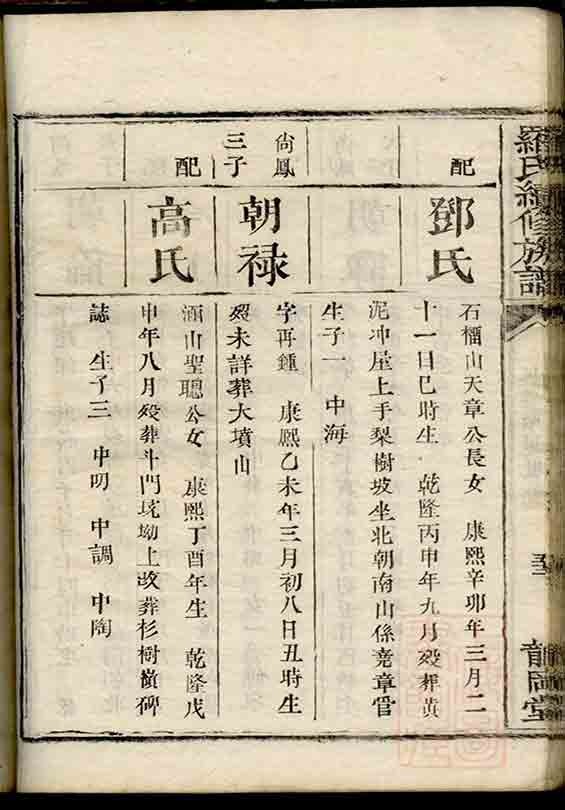 羅氏續修族譜
龍門堂
配
鄧氏
石橊山天章公長女 康熙辛卯年三月二
十一日巳時生 乾隆丙申年九月殁葬黄
泥冲屋上手梨樹坡坐北朝南山係堯章管
生子一 中海
尙鳳
三子
朝禄
字再鍾 康熙乙未年三月初八日丑時生
殁未詳葬大墳山
配
高氏
酒山聖聰公女 康熙丁酉年生 乾隆戊
申年八月殁葬斗門坑坳上改葬杉樹嶺碑
誌 生子三 中明 中調 中陶